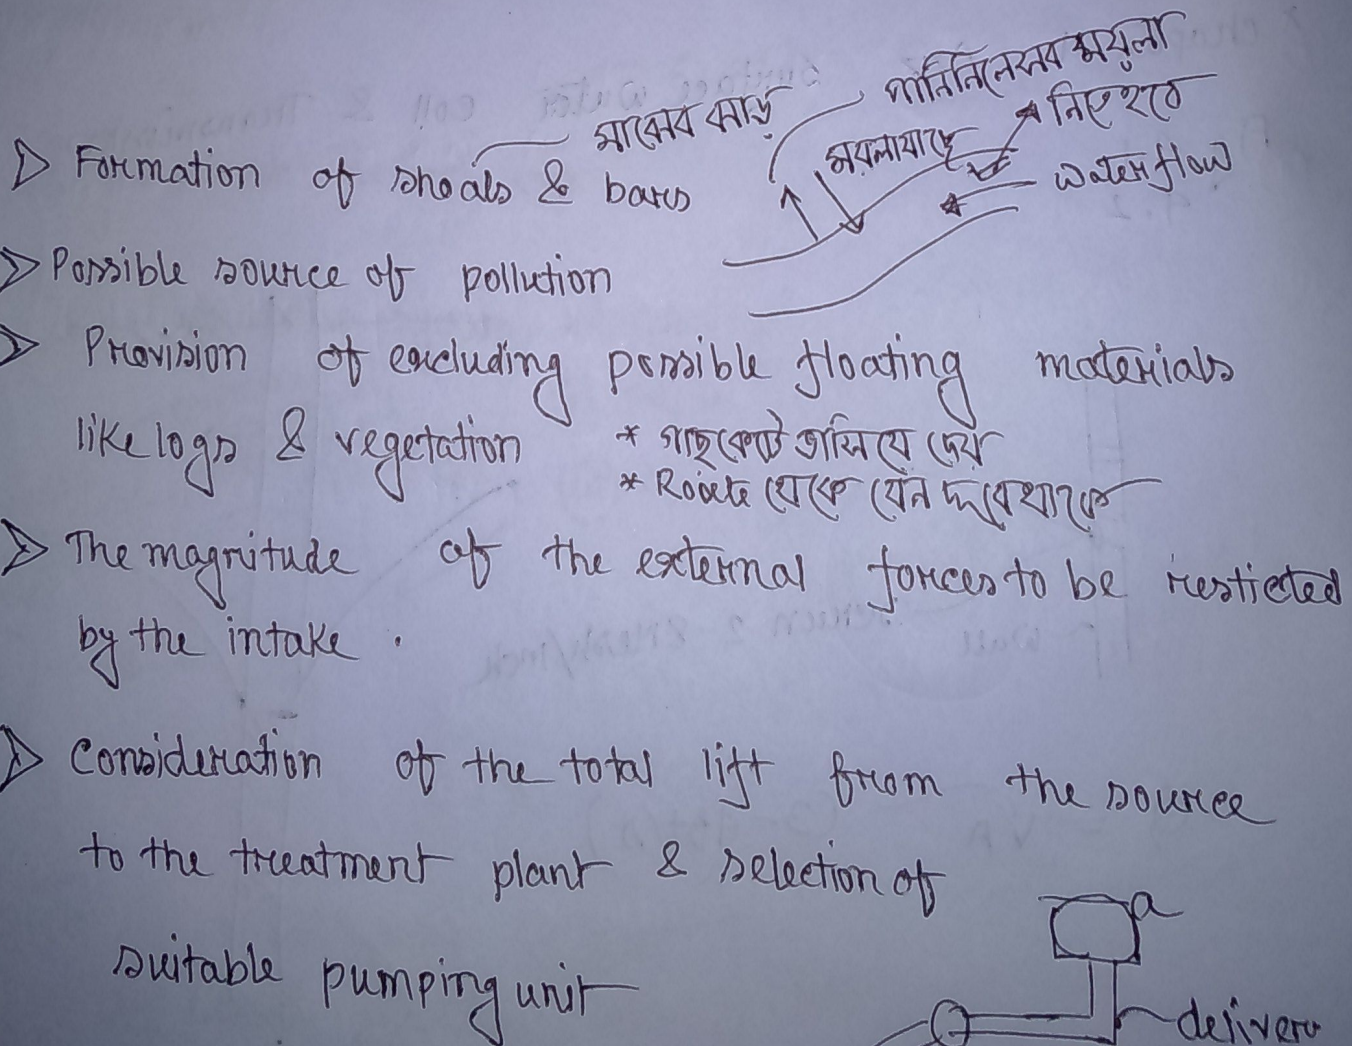 পানি নিলে সব ময়লা
নিতে হবে
মাছের ঝাড়
ময়লা যাচ্ছে
Formation of shoals & bars
water flow
Possible source of pollution
Provision of excluding possible floating materials
like logs & vegetation
* গাছ কেটে ভাসিয়ে দেয়
* Route থেকে যেন দূরে থাকে
The magnitude of the external forces to be resticted
by the intake.
Consideration of the total lift from the source
to the treatment plant & selection of
suitable pumping unit
a
delivery